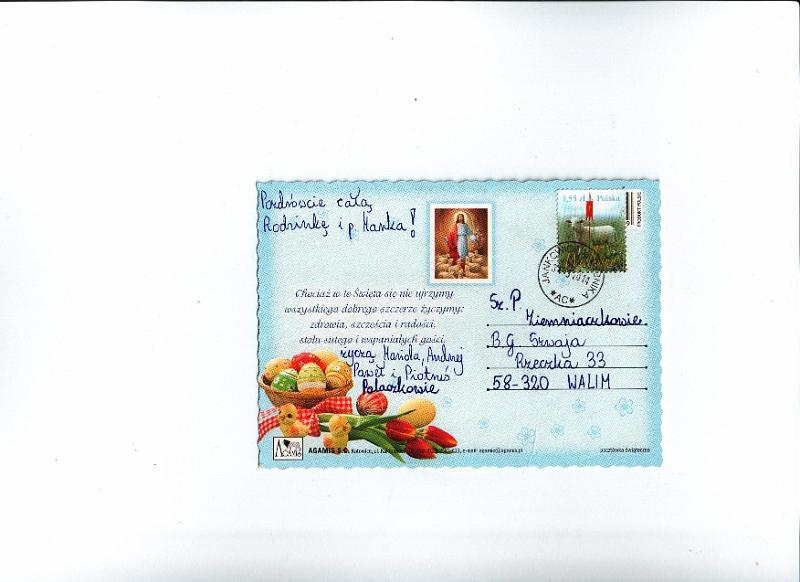 Pozdrówcie całą
Rodzinkę i p. Manka!
Chociaż w te Święta się nie ujrzymy
wszystkiego dobrego szczerze życzymy:
zdrowia, szczęścia i radości,
stołu sutego i wspaniałych gości.
życzą Mariola, Andrzej
Paweł i Piotruś
Palaczkowie
1,55 zł Polska
Sz. P.
Ziemniaczkowie
B.G Szwaja
Rzeczka 33
58-320 WALIM
AGAMIS S.C. Katowice, ul.
pocztówka świąteczna